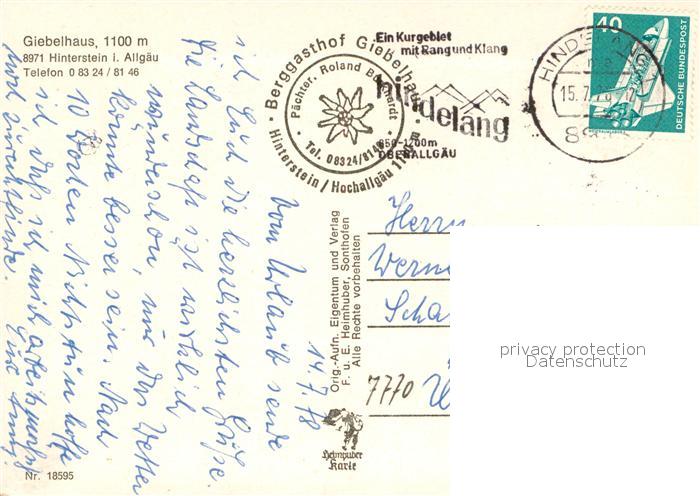 Giebelhaus, 1100 m
8971 Hinterstein i. Allgäu
Telefon 0 83 24 / 81 46
Berggasthof Giebelhaus
Pächter. Roland
Tel. 08324/8146
Hinterstein / Hochallgäu 1100 m
Ein Kurgebiet
mit Rang und Klang
hindelang
850-1200m
OBERALLGÄU
HINDELANG
15.7.78
40
DEUTSCHE BUNDESPOST
14.7.78
Vom Urlaub sende
ich Euch die herzlichsten Grüße.
Die Landschaft ist wirklich
wunderschön, nur das Wetter
könnte besser sein. Nach
10 Wochen Nichtstun hoffe
ich daß ich mich
noch zurechtfinde.
Orig.-Aufn. Eigentum und Verlag
F. u. E. Heimhuber, Sonthofen
Alle Rechte vorbehalten
Herrn
Werne
Scha
7770 Ü
Heimhuber
Karte
Nr. 18595
privacy protection
Datenschutz